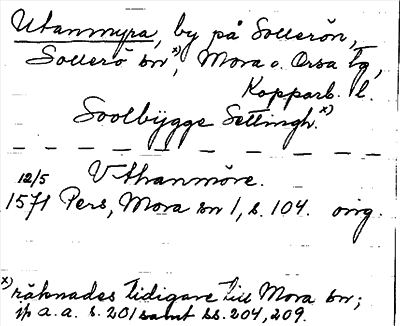 Utanmyra, by på Sollerön,
Sollerö sn x), Mora o. Orsa tg,
Kopparb. l.
Soolbÿgge Settingh. x)
12/5 Vthanmöre.
1571 Pers, Mora sn 1, s. 104. orig.
x) räknades tidigare till Mora sn;
jfr a. a. s. 201 samt ss. 204, 209.